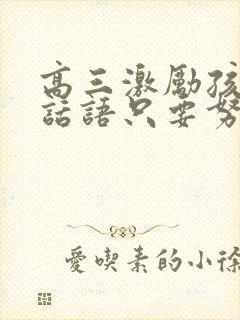 高三激励孩
話語只要努
愛喫素的小徐